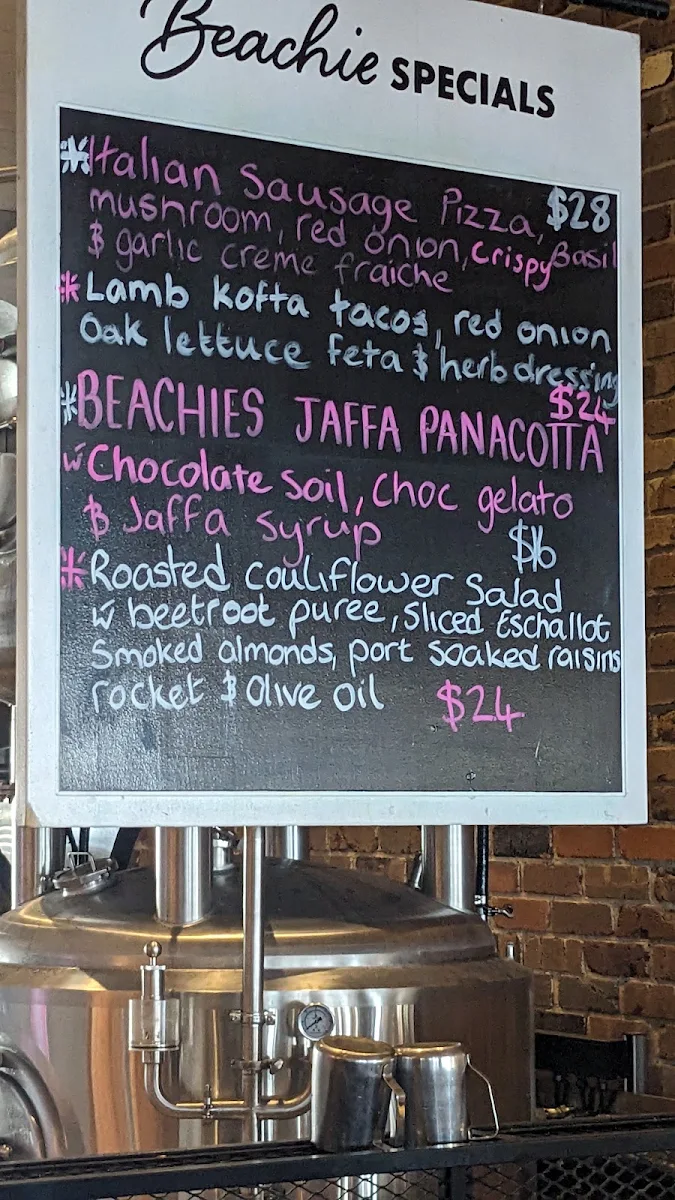 Beachie SPECIALS
*Italian Sausage Pizza, $28
mushroom, red onion, crispy Basil
& garlic creme fraiche
*Lamb kofta tacos, red onion
Oak lettuce feta & herb dressing
$24
*BEACHIES JAFFA PANACOTTA
w Chocolate soil, choc gelato
& Jaffa syrup $16
*Roasted couliflower salad
w beetroot puree, sliced Eschallot
Smoked almonds, port soaked raisins
rocket & Olive oil $24